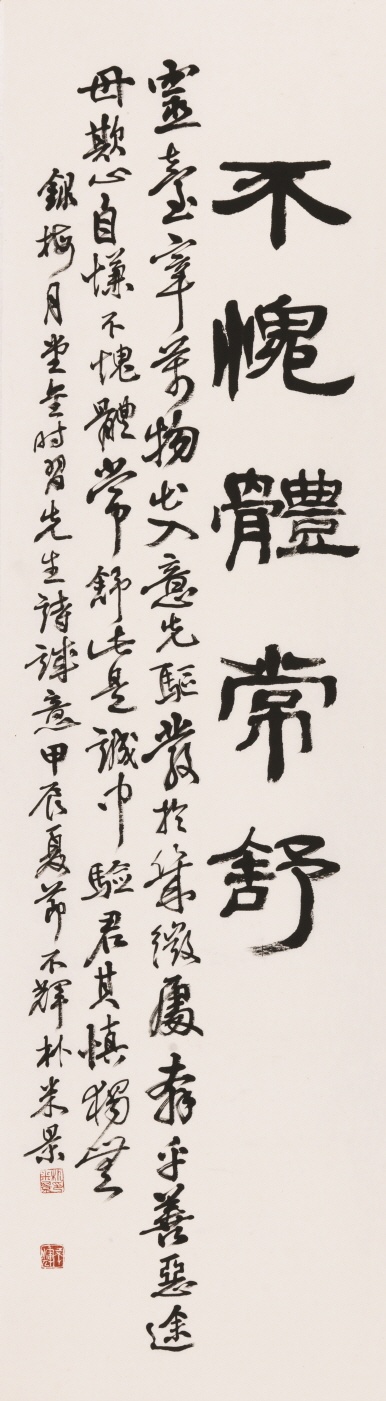 不愧體常舒
靈臺宰萬物出入意先驅發於幾微處乎善惡途
毋欺心自慊不愧體常舒此是誠中驗君其慎獨無
錄梅月堂金时習先生詩誠意甲辰夏節不輝朴米景